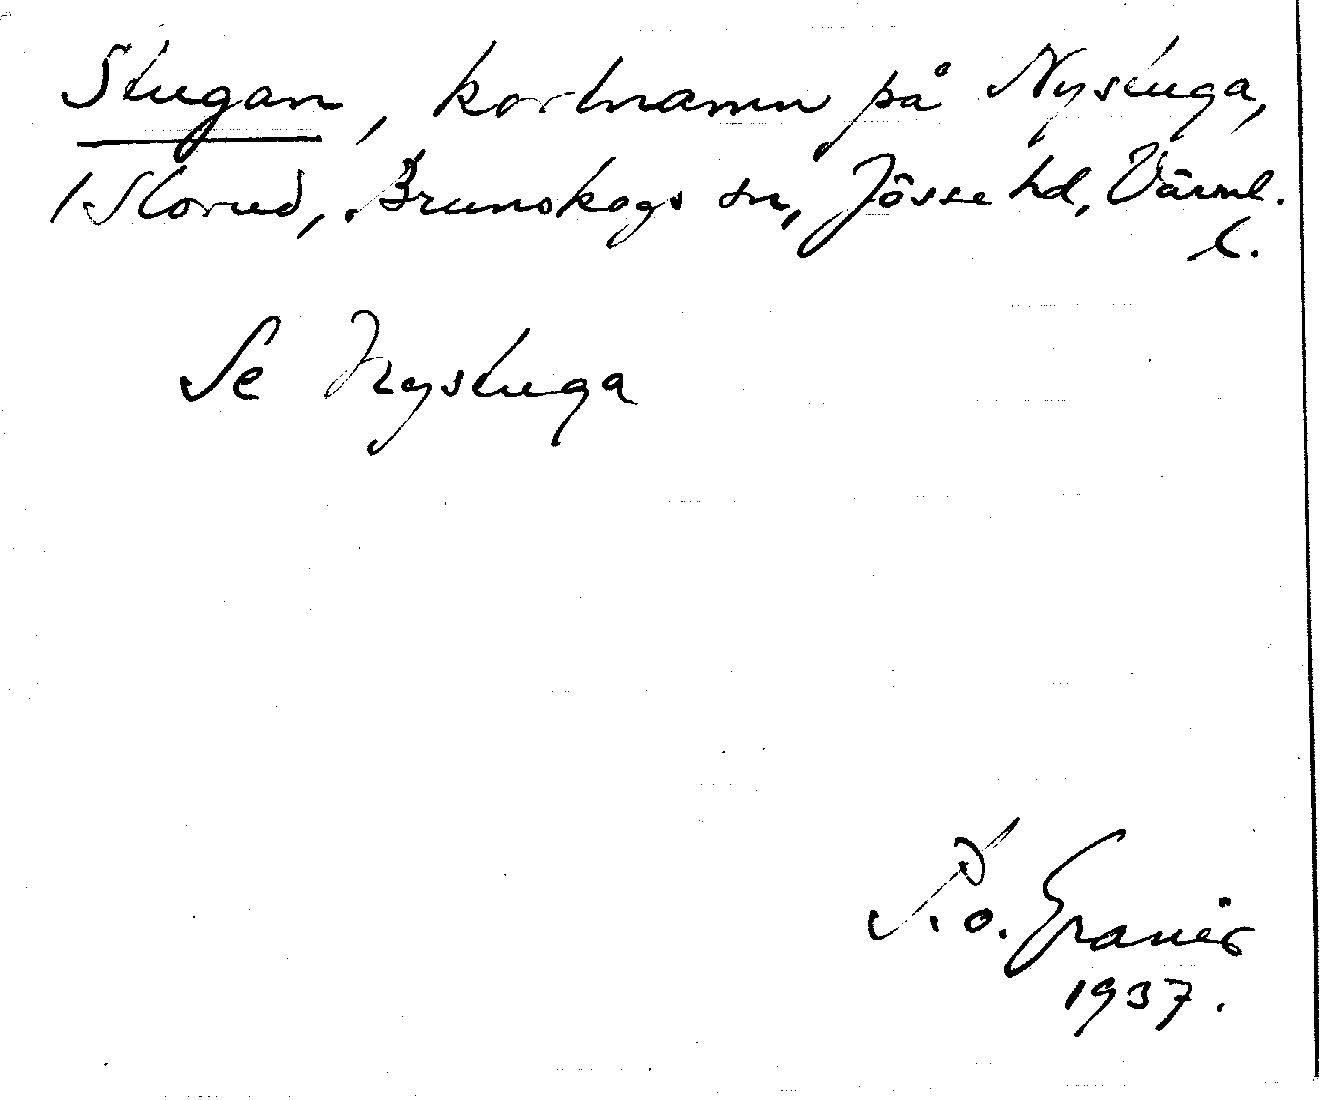 Stugan, kortnamn på Nystuga,
1 Storud, Brunskogs sn, Jösse hd, Värml.
l.
Se Nystuga
P. o. Granér
1937.